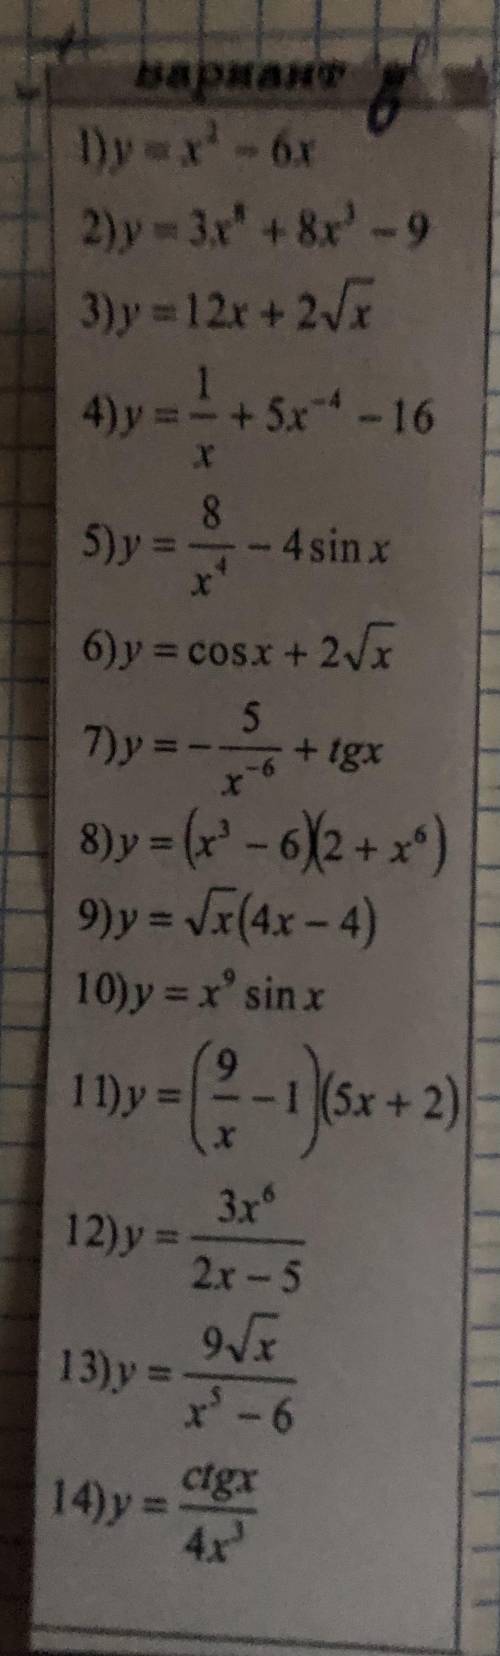 вариант 6
1) y = x² − 6x
2) y = 3x⁸ + 8x³ − 9
3) y = 12x + 2√x
4) y = 1/x + 5x⁻⁴ − 16
5) y = 8/x⁴ − 4 sin x
6) y = cosx + 2√x
7) y = − 5/x⁻⁶ + tgx
8) y = (x³ − 6)(2 + x⁶)
9) y = √x(4x − 4)
10) y = x⁹ sin x
11) y = (9/x − 1)(5x + 2)
12) y = 3x⁶/(2x − 5)
13) y = 9√x/(x⁵ − 6)
14) y = ctgx/4x³